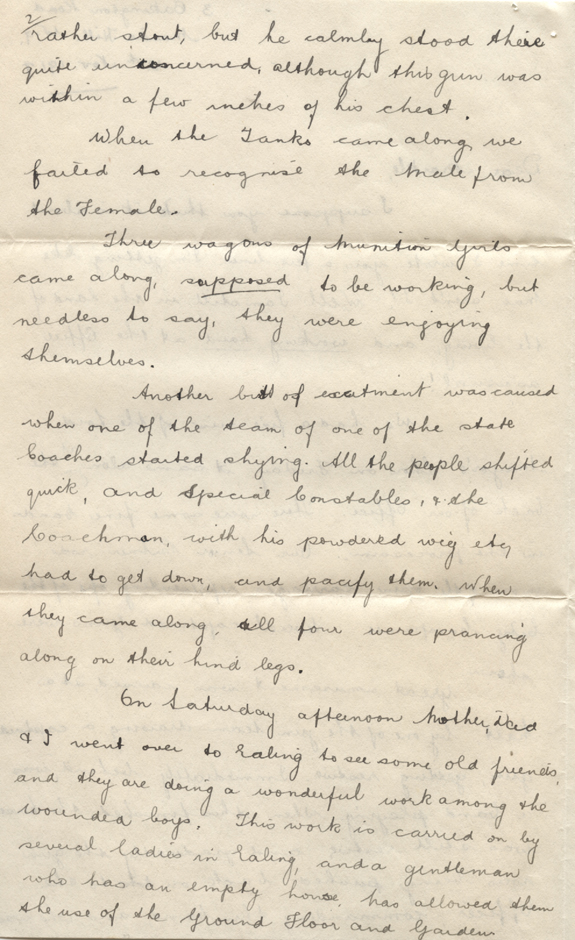 2/
rather stout, but he calmly stood there
quite unconcerned, although this gun was
within a few inches of his chest.
When the Tanks came along, we
failed to recognise the Male from
the Female.
Three wagons of Munition Girls
came along, supposed to be working, but
needless to say, they were enjoying
themselves.
Another bit of excitment was caused
when one of the team of one of the state
Coaches started shying. All the people shifted
quick, and Special Constables, & the
Coachman, with his powdered wig etc,
had to get down, and pacify them. When
they came along, all four were prancing
along on their hind legs.
On Saturday afternoon Mother, Dad
& I went over to Ealing to see some old friends,
and they are doing a wonderful work among the
wounded boys. This work is carried on by
several ladies in Ealing, and a gentleman
who has an empty house, has allowed them
the use of the Ground Floor and Garden